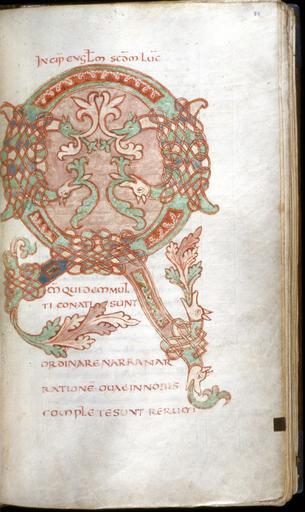 INCIP EUGLM SCDM LUC
Q
NM QUIDEM MUL
TI CONATI SUNT
ORDINARE NARRATIONAR
RATIONE QUAE IN NOBIS
COMPLETE SUNT RERUM